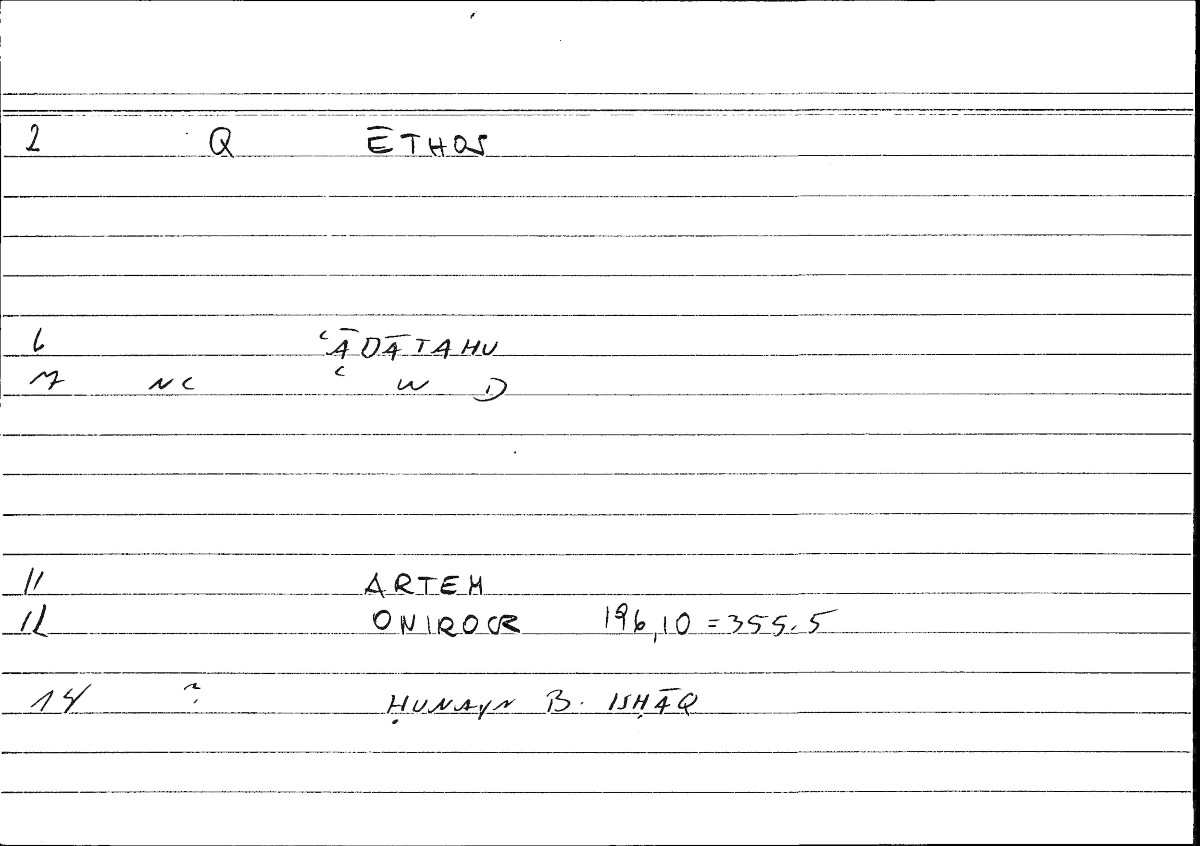 2 Q ĒTHOS
6 ʿĀDĀTAHU
7 NC ʿ W D
11 ARTEM
12 ONIROCR 196,10 = 355.5
14 ? ḤUNAYN B. ISḤĀQ